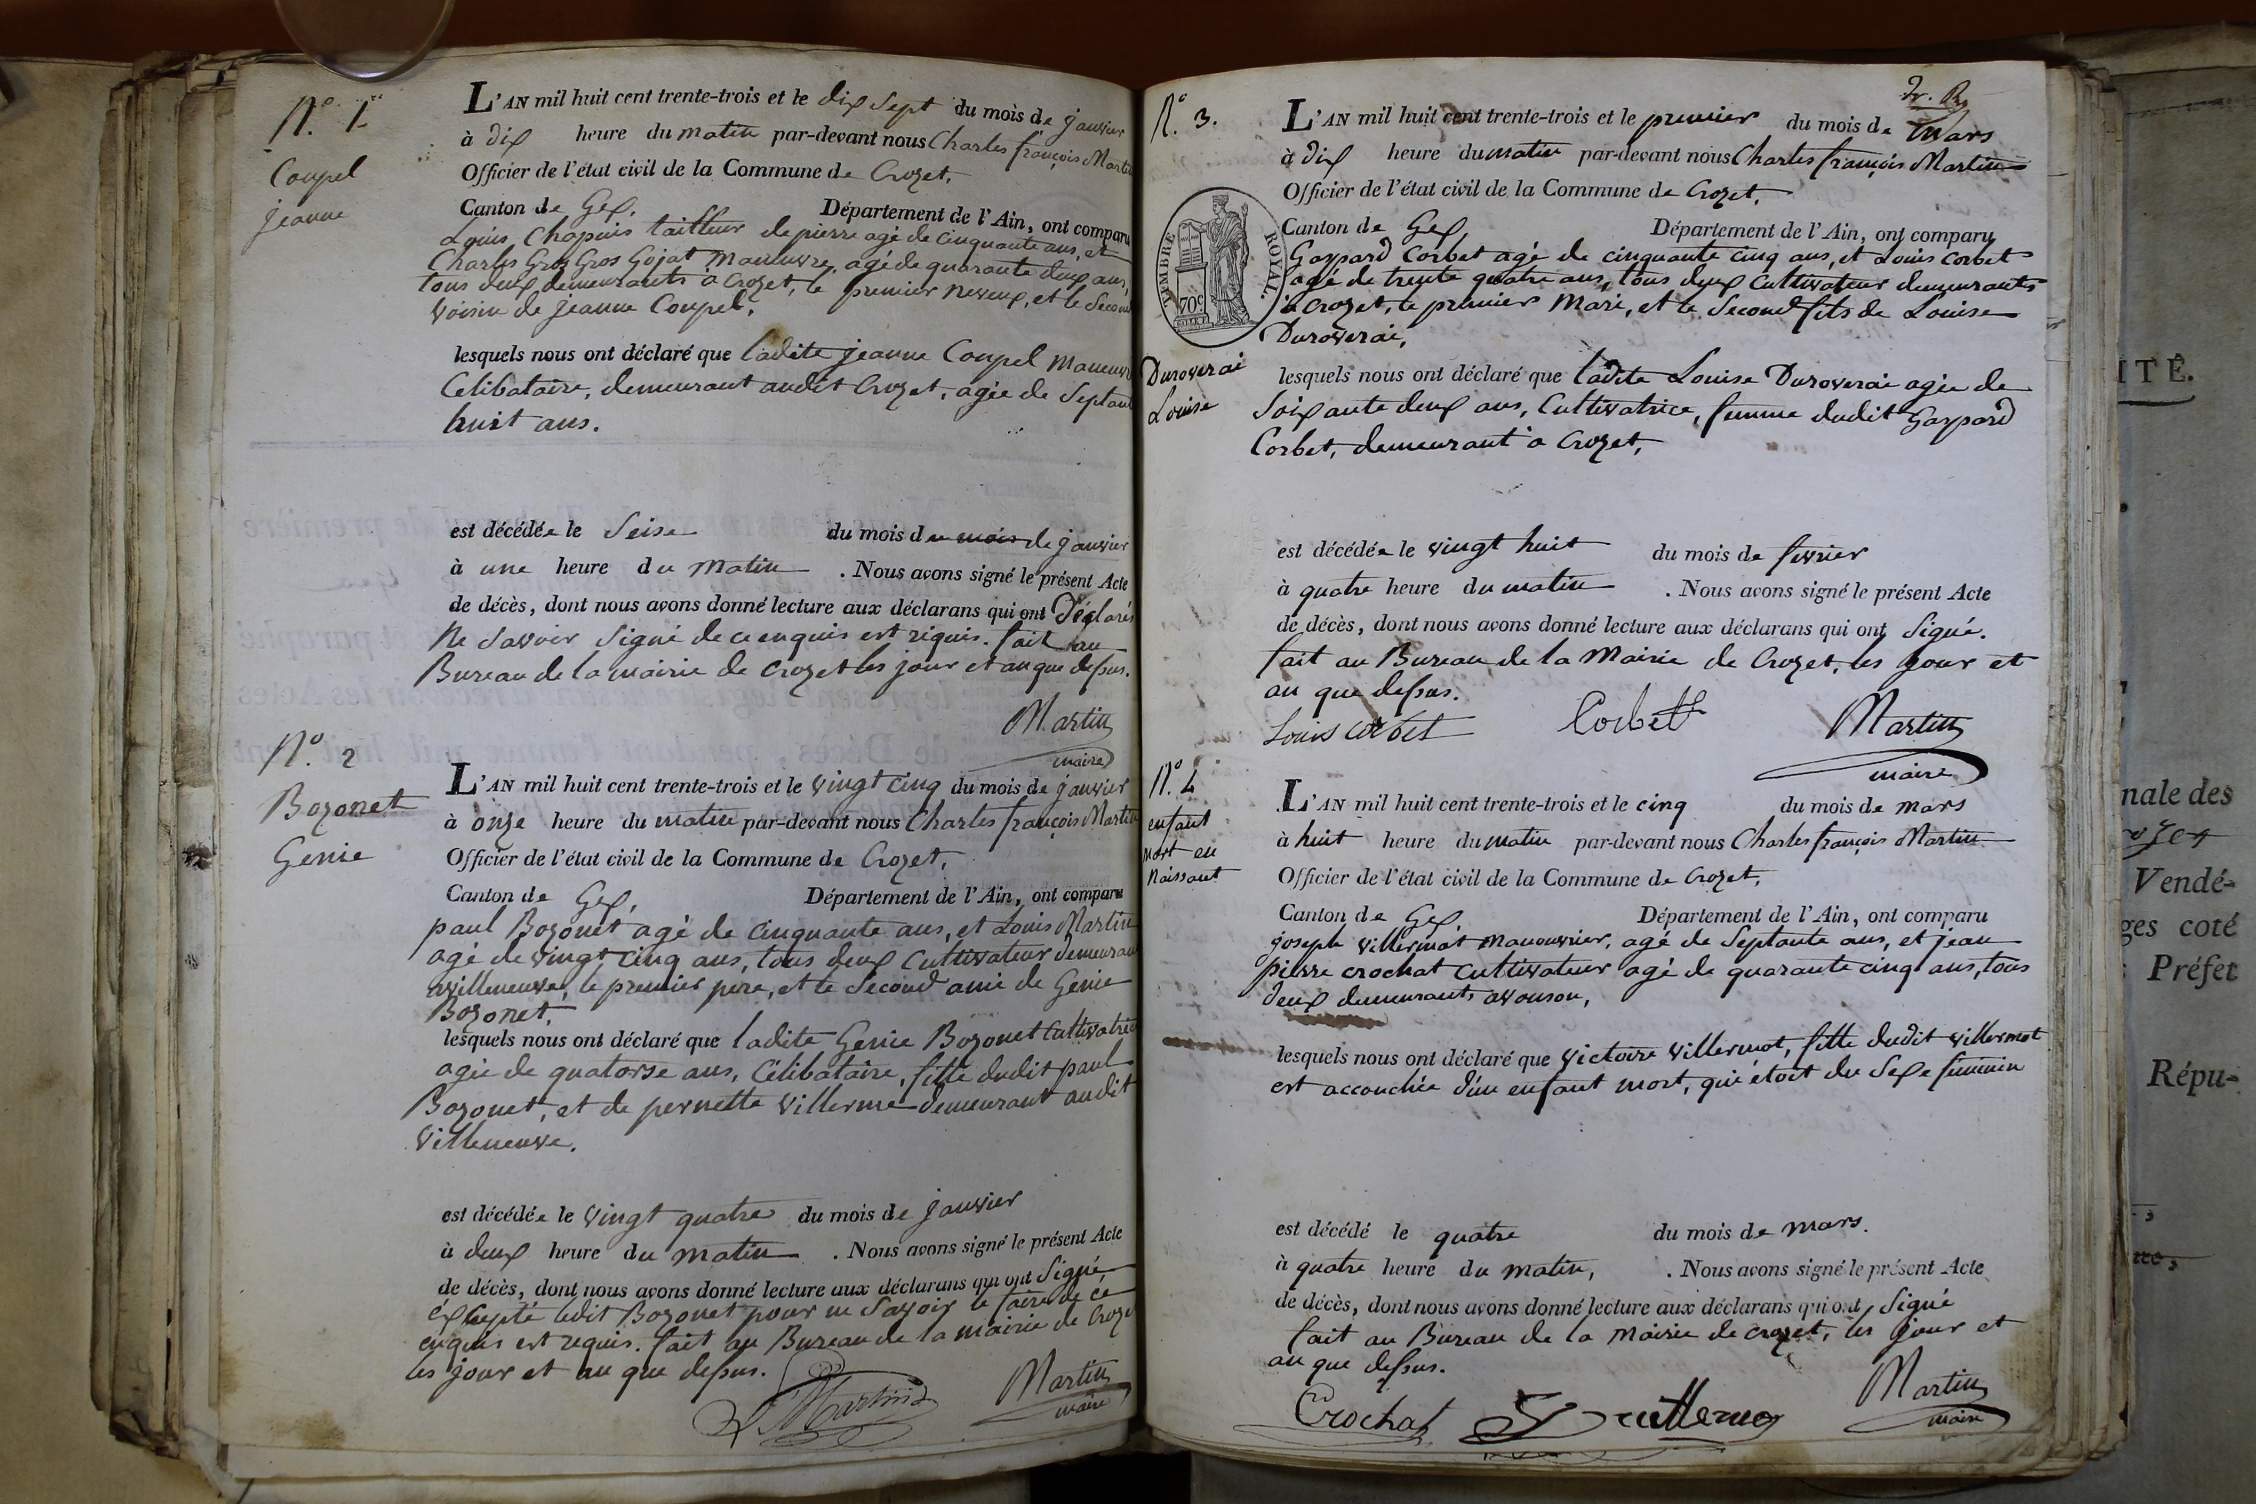 N.° 1.er
Coupel
jeanne
L'AN mil huit cent trente-trois et le dix sept du mois de janvier
à dix heure du matin par-devant nous Charles françois Martin
Officier de l'état civil de la Commune de Crozet.
Canton de Gex. Département de l'Ain, ont comparu
Louis Chapuis tailleur de pierre agé de cinquante ans, et
Charles Gros Gros Gojat manœuvre, agé de quarante deux ans,
tous deux demeurants à Crozet, le premier neveux, et le second
voisin de jeanne Coupel.
lesquels nous ont déclaré que ladite jeanne Coupel manœuvre
Celibataire, demeurant audit Crozet, agée de septante
huit ans.
est décédée le seise du mois du mois de janvier
à une heure du matin . Nous avons signé le présent Acte
de décès, dont nous avons donné lecture aux déclarans qui ont déclarés
ne savoir signé de ce enquis est riquis. fait au
Bureau de la mairie de Crozet les jour et an que dessus.
Martin
maire
N.° 2
Bozonet
Genie
L'AN mil huit cent trente-trois et le vingt cinq du mois de janvier
à onze heure du matin par-devant nous Charles françois Martin
Officier de l'état civil de la Commune de Crozet.
Canton de Gex. Département de l'Ain, ont comparu
paul Bozonet agé de cinquante ans, et Louis Martin
agé de vingt cinq ans, tous deux Cultivateur demeurant
avilleneuve, le premier pere, et le second amie de Genie
Bozonet.
lesquels nous ont déclaré que ladite Genie Bozonet Cultivatrice
agée de quatorse ans, Célibataire, fille dudit paul
Bozonet, et de pernette Villerme demeurant audit
Villeneuve.
est décédée le vingt quatre du mois de janvier
à deux heure du matin . Nous avons signé le présent Acte
de décès, dont nous avons donné lecture aux déclarans qui ont signé,
éxcepté ledit Bozonet pour ne savoir le faire de ce
enquis est requis. fait au Bureau de la mairie de Crozet
les jour et an que dessus.
L. Martin
Martin
maire
N.° 3.
TIMBRE ROYAL.
70c
Duroverai
Louise
L'AN mil huit cent trente-trois et le premier du mois de mars
à dix heure du matin par-devant nous Charles françois Martin
Officier de l'état civil de la Commune de Crozet.
Canton de Gex Département de l'Ain, ont comparu
Gaspard Corbet agé de cinquante cinq ans, et Louis corbet
agé de trente quatre ans, tous deux Cultivateur demeurants
à crozet, le premier Mari, et le second fils de Louise
Duroverai.
lesquels nous ont déclaré que ladite Louise Duroverai agée de
soixante deux ans, Cultivatrice, femme dudit Gaspard
Corbet, demeurant à Crozet.
est décédée le vingt huit du mois de fevrier
à quatre heure du matin . Nous avons signé le présent Acte
de décès, dont nous avons donné lecture aux déclarans qui ont signé.
fait au Bureau de la Mairie de Crozet, les jour et
an que dessus.
Louis corbet Corbett Martin
maire
N.° 4
enfant
mort en
naissant
L'AN mil huit cent trente-trois et le cinq du mois de mars
à huit heure du matin par-devant nous Charles françois Martin
Officier de l'état civil de la Commune de Crozet.
Canton de Gex Département de l'Ain, ont comparu
joseph villermot manouvrier, agé de septante ans, et jean
pierre crochat cultivateur agé de quarante cinq ans, tous
deux demeurants avouson,
lesquels nous ont déclaré que victoire villermot, fille dudit villermot
est accouchée d'un enfant mort, qui étoit du sexe feminin
est décédé le quatre du mois de mars.
à quatre heure du matin, . Nous avons signé le présent Acte
de décès, dont nous avons donné lecture aux déclarans qui ont signé
fait au Bureau de la Mairie de crozet, les jour et
an que dessus.
Crochat
Martin
maire
ITÉ.
nale des
ozet
Vendé-
ges coté
Préfet
Répu-